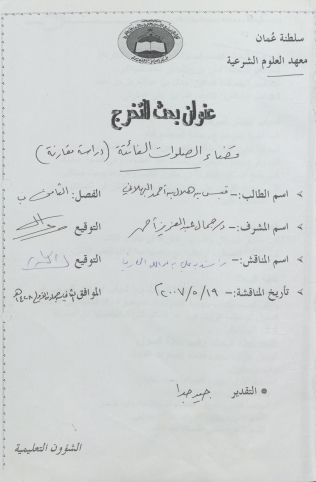 سلطنة عُمان
معهد العلوم الشرعية
عنوان بحث التخرج
قضاء الصلوات الفائتة (دراسة مقارنة)
اسم الطالب:- قيس بن هلال بن أحمد البهلاني الفصل: الثامن ب
اسم المشرف:- د/ جمال عبدالعزيز أحمد التوقيع
اسم المناقش:- التوقيع
تأريخ المناقشة:- ٢٠٠٧/٥/١٩ الموافق
التقدير جيد جدا
الشؤون التعليمية